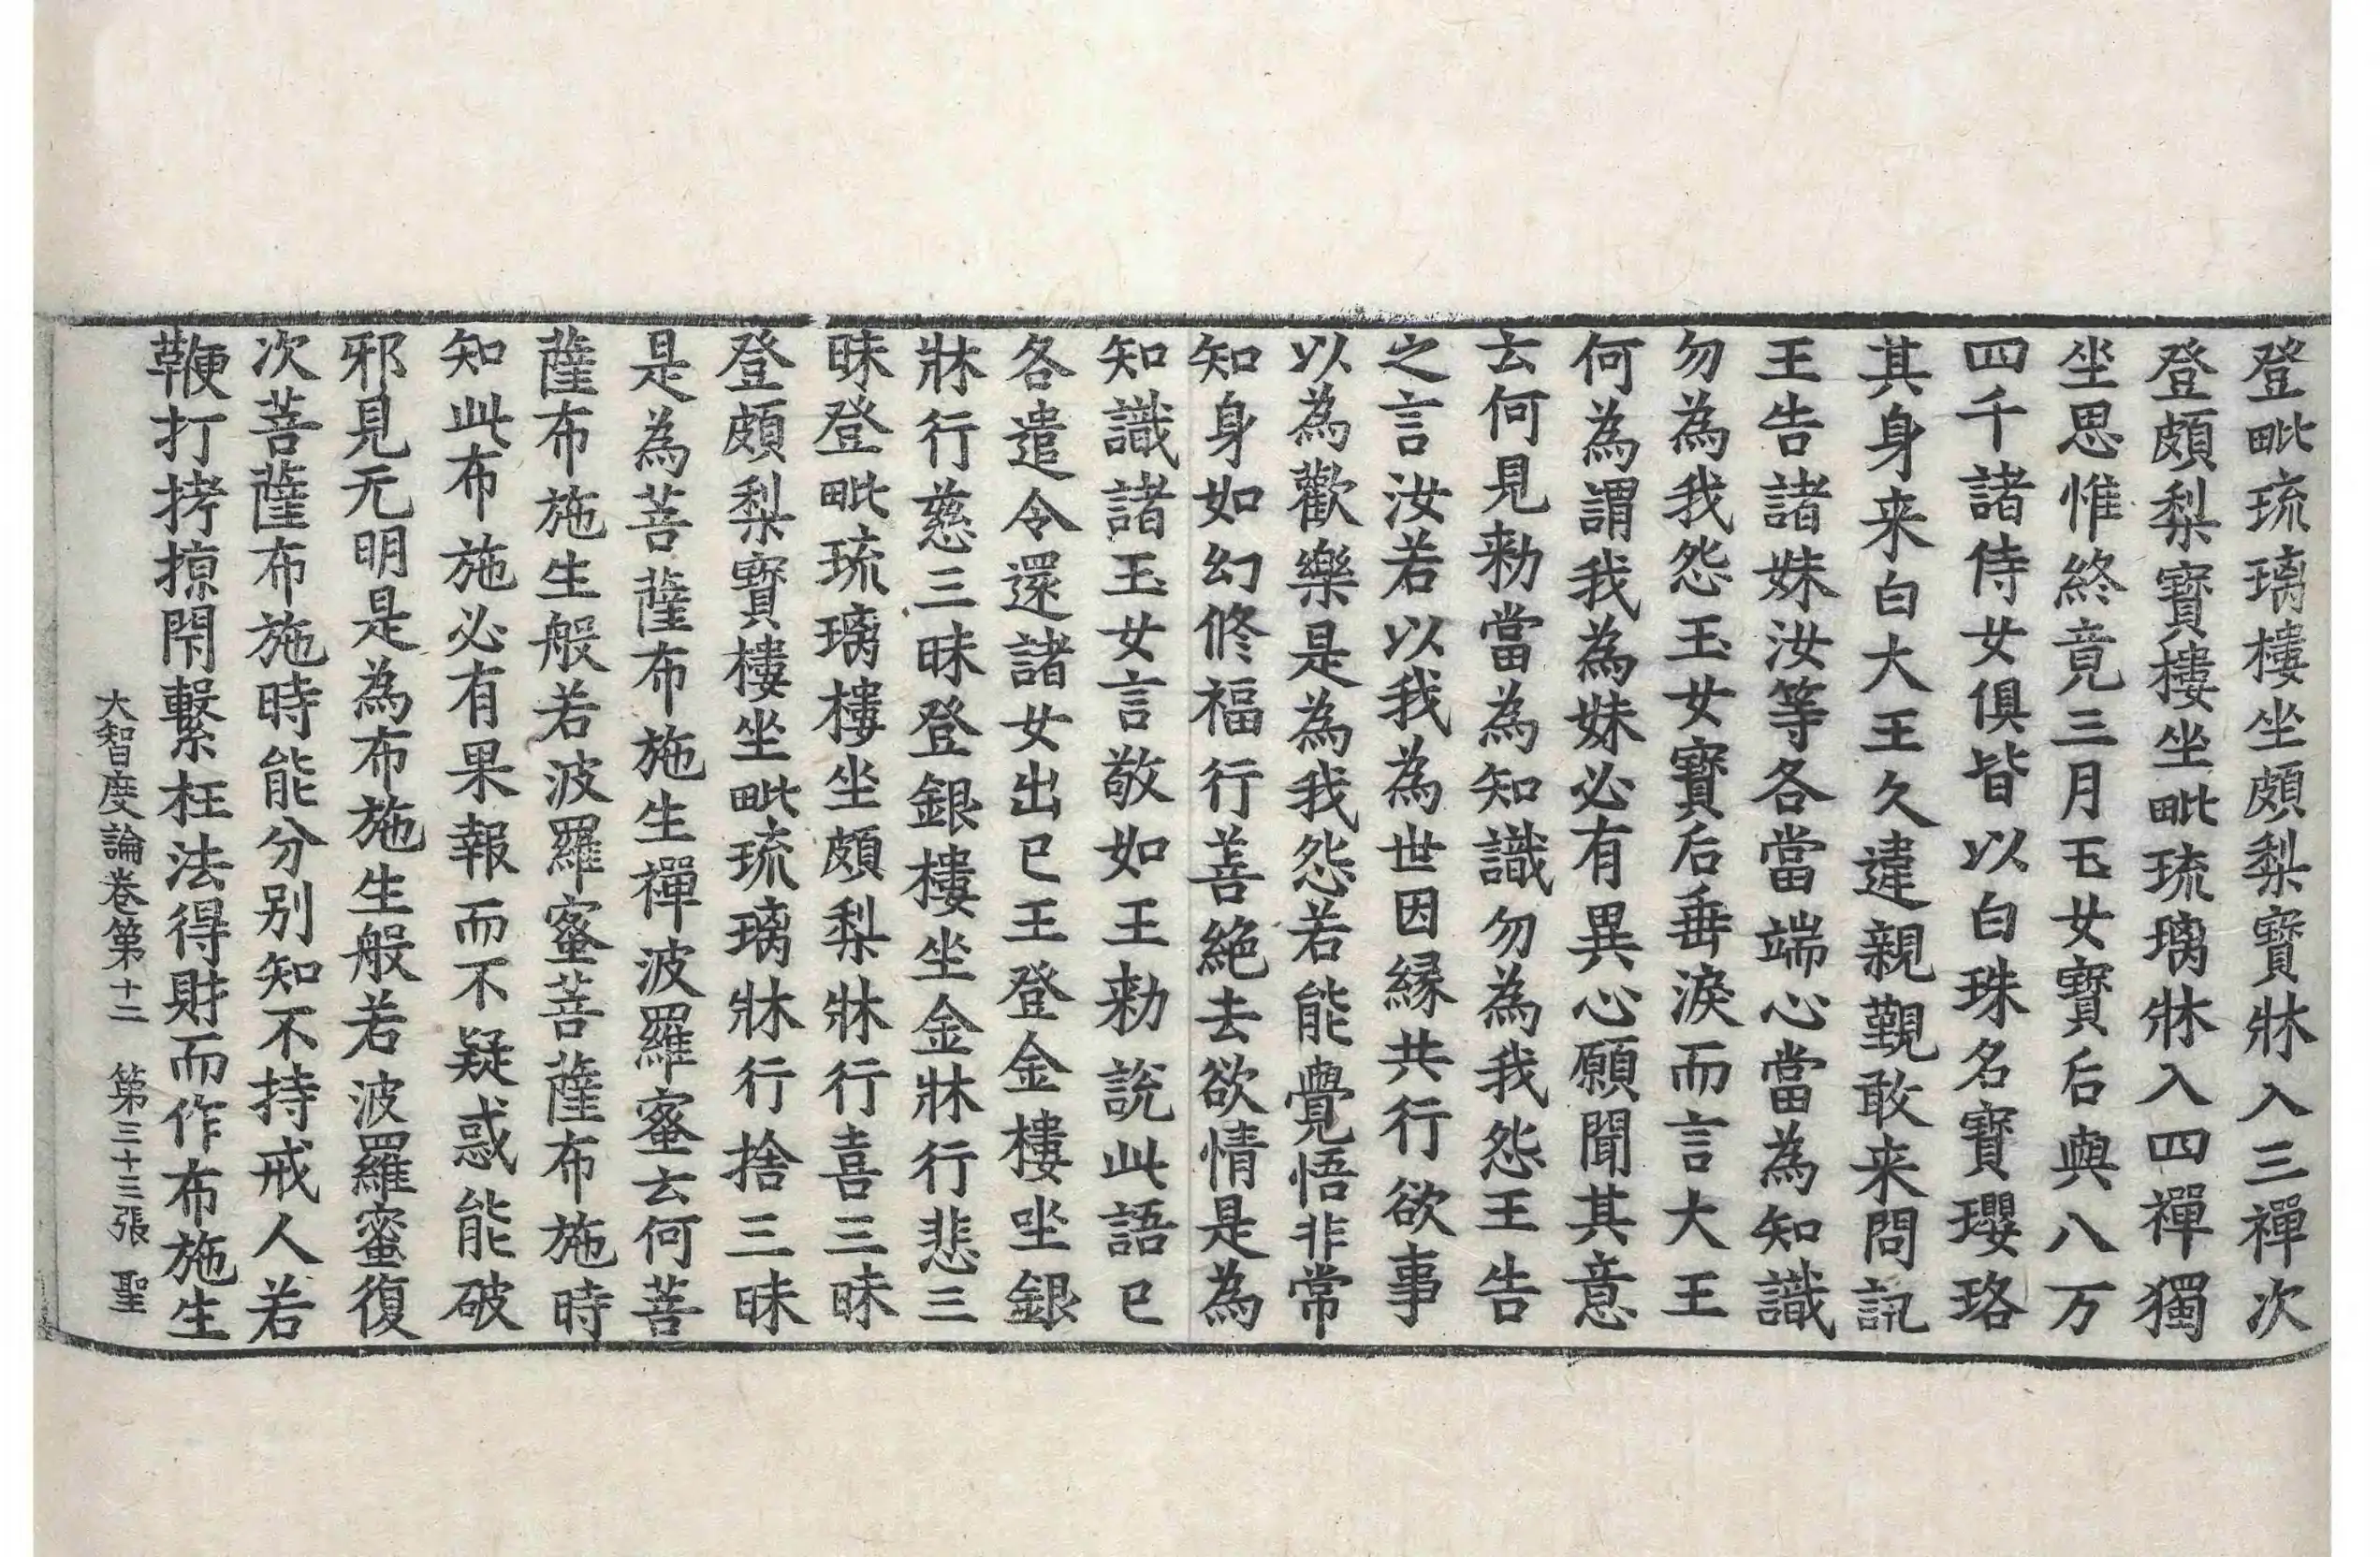 登毗琉璃樓坐頗梨寶牀入三禪次
登頗梨寶樓坐毗琉璃牀入四禪獨
坐思惟終竟三月玉女寶后與八万
四千諸侍女俱皆以白珠名寶瓔珞
其身来白大王久違親覲敢来問訊
王告諸妹汝等各當端心當為知識
勿為我怨玉女寶后垂淚而言大王
何為謂我為妹必有異心願聞其意
云何見勑當為知識勿為我怨王告
之言汝若以我為世因緣共行欲事
以為歡樂是為我怨若能覺悟非常
知身如幻修福行善絕去欲情是為
知識諸玉女言敬如王勑說此語已
各遣令還諸女出已王登金樓坐銀
牀行慈三昧登銀樓坐金牀行悲三
昧登毗琉璃樓坐頗梨牀行喜三昧
登頗梨寶樓坐毗琉璃牀行捨三昧
是為菩薩布施生禪波羅蜜云何菩
薩布施生般若波羅蜜菩薩布施時
知此布施必有果報而不疑惑能破
邪見无明是為布施生般若波羅蜜復
次菩薩布施時能分別知不持戒人若
鞭打拷掠閇繫枉法得財而作布施生
大智度論卷第十二 第三十三張 聖